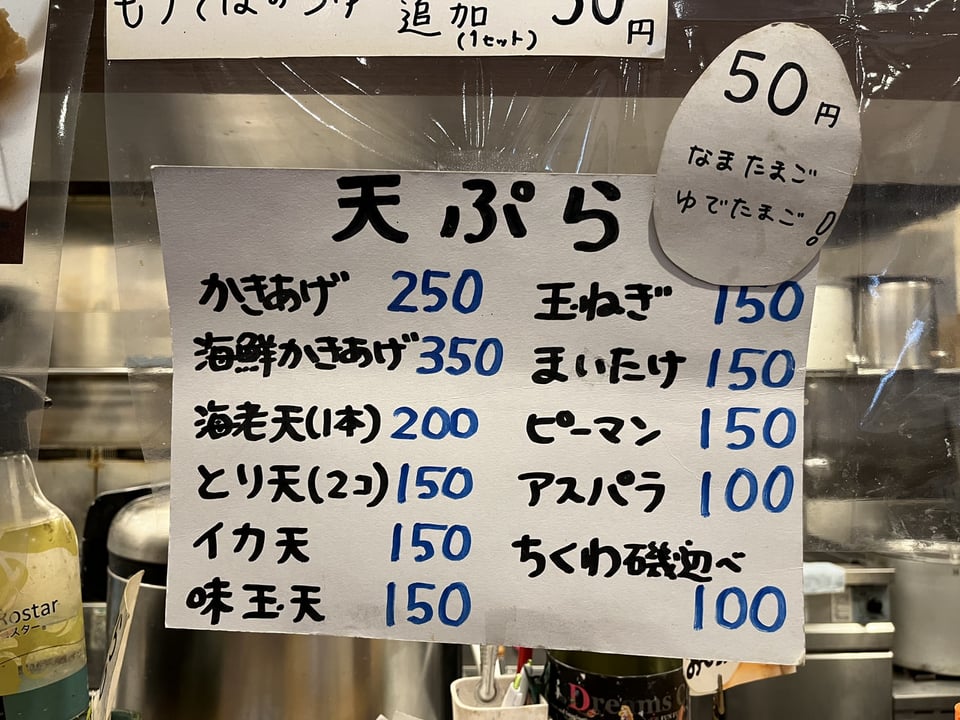 追加
(1セット)
50円
50円
なまたまご
ゆでたまご!
天ぷら
かきあげ 250
海鮮かきあげ 350
海老天(1本) 200
とり天(2コ) 150
イカ天 150
味玉天 150
玉ねぎ 150
まいたけ 150
ピーマン 150
アスパラ 100
ちくわ磯辺べ
100
Rostar
スター
Dreams C